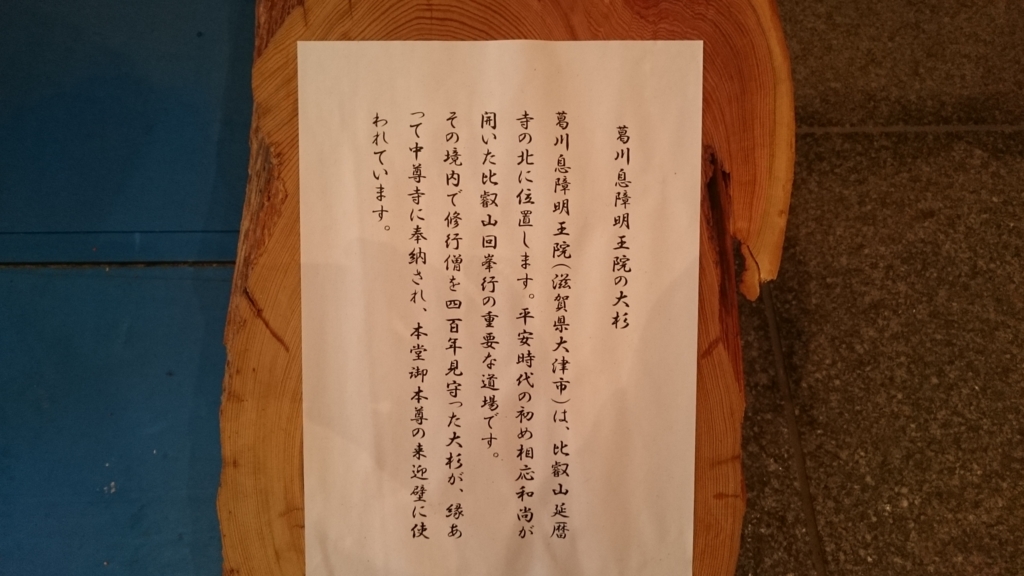 葛川息障明王院の大杉
葛川息障明王院(滋賀県大津市)は、比叡山延暦
寺の北に位置します。平安時代の初め相応和尚が
開いた比叡山回峯行の重要な道場です。
その境内で修行僧を四百年見守った大杉が、縁あ
って中尊寺に奉納され、本堂御本尊の来迎壁に使
われています。